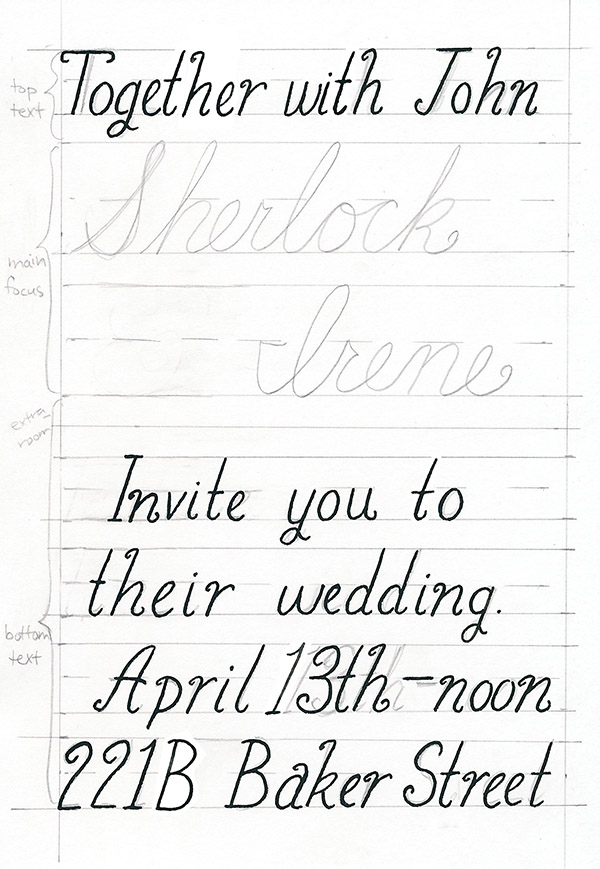 Together with John
top
text
Sherlock
main
focus
Irene
extra
room
Invite you to
their wedding.
bottom
text
April 13th-noon
221B Baker Street